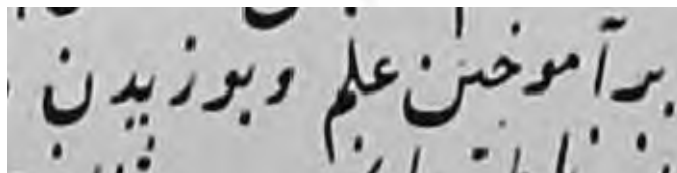 بر آموختن علم و بوزیدن